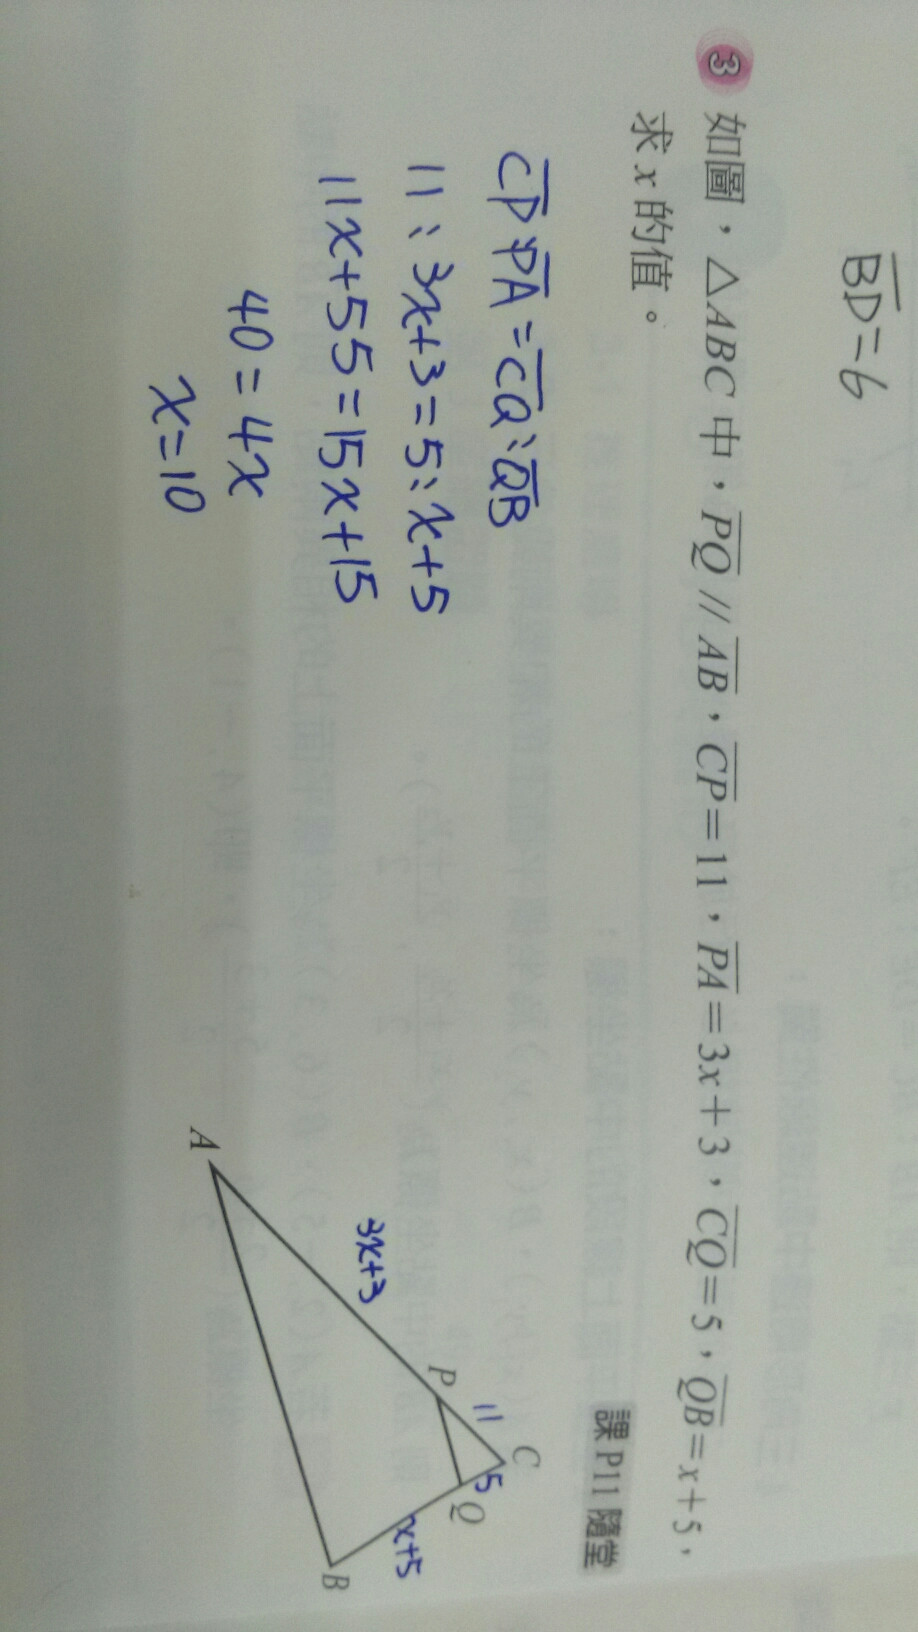 BD=6
3 如圖，△ABC 中，PQ // AB，CP=11，PA=3x+3，CQ=5，QB=x+5，
求 x 的值。
課 P11 隨堂
CP:PA=CQ:QB
11:3x+3=5:x+5
11x+55=15x+15
40=4x
x=10
C
11
5
P
Q
3x+3
x+5
A
B